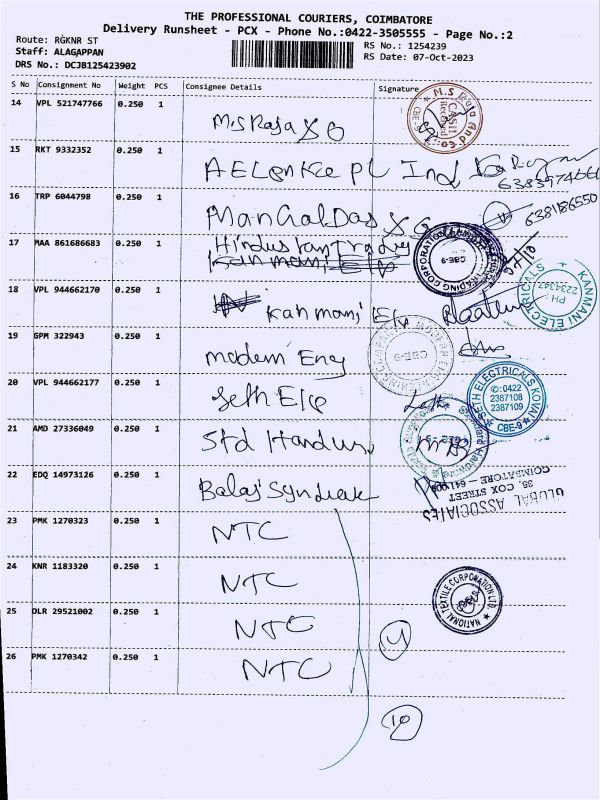 THE PROFESSIONAL COURIERS, COIMBATORE
Delivery Runsheet - PCX - Phone No.:0422-3505555 - Page No.:2
Route: RGKNR ST
RS No.: 1254239
Staff: ALAGAPPAN
RS Date: 07-Oct-2023
DRS No.: DCJB125423902
S No Consignment No Weight PCS Consignee Details Signature
14 VPL 521747766 0.250 1 M.S Raja & Co
15 RKT 9332352 0.250 1 Ind
6383974661
16 TRP 6044798 0.250 1 ManGalDas & Co
6381186550
17 MAA 861686683 0.250 1 Hindustan Trading
TRADING CORPORATION CBE-9
18 VPL 944662170 0.250 1 Kanmani
KANMANI ELECTRICALS PH: 2234347
19 GPM 322943 0.250 1 modern Eng
CBE-9
20 VPL 944662177 0.250 1 Seth Ele
SETH ELECTRICALS KOVAI ✆:0422 2387108 2387109 CBE-9
21 AMD 27336049 0.250 1 Std Hardware
22 EDQ 14973126 0.250 1 Balaji Syndicate
GLOBAL ASSOCIATES
38, COX STREET
COIMBATORE - 641 001
23 PMK 1270323 0.250 1 NTC
24 KNR 1183320 0.250 1 NTC
NATIONAL TEXTILE CORPORATION LTD.
25 DLR 29521002 0.250 1 NTC
4
26 PMK 1270342 0.250 1 NTC
10